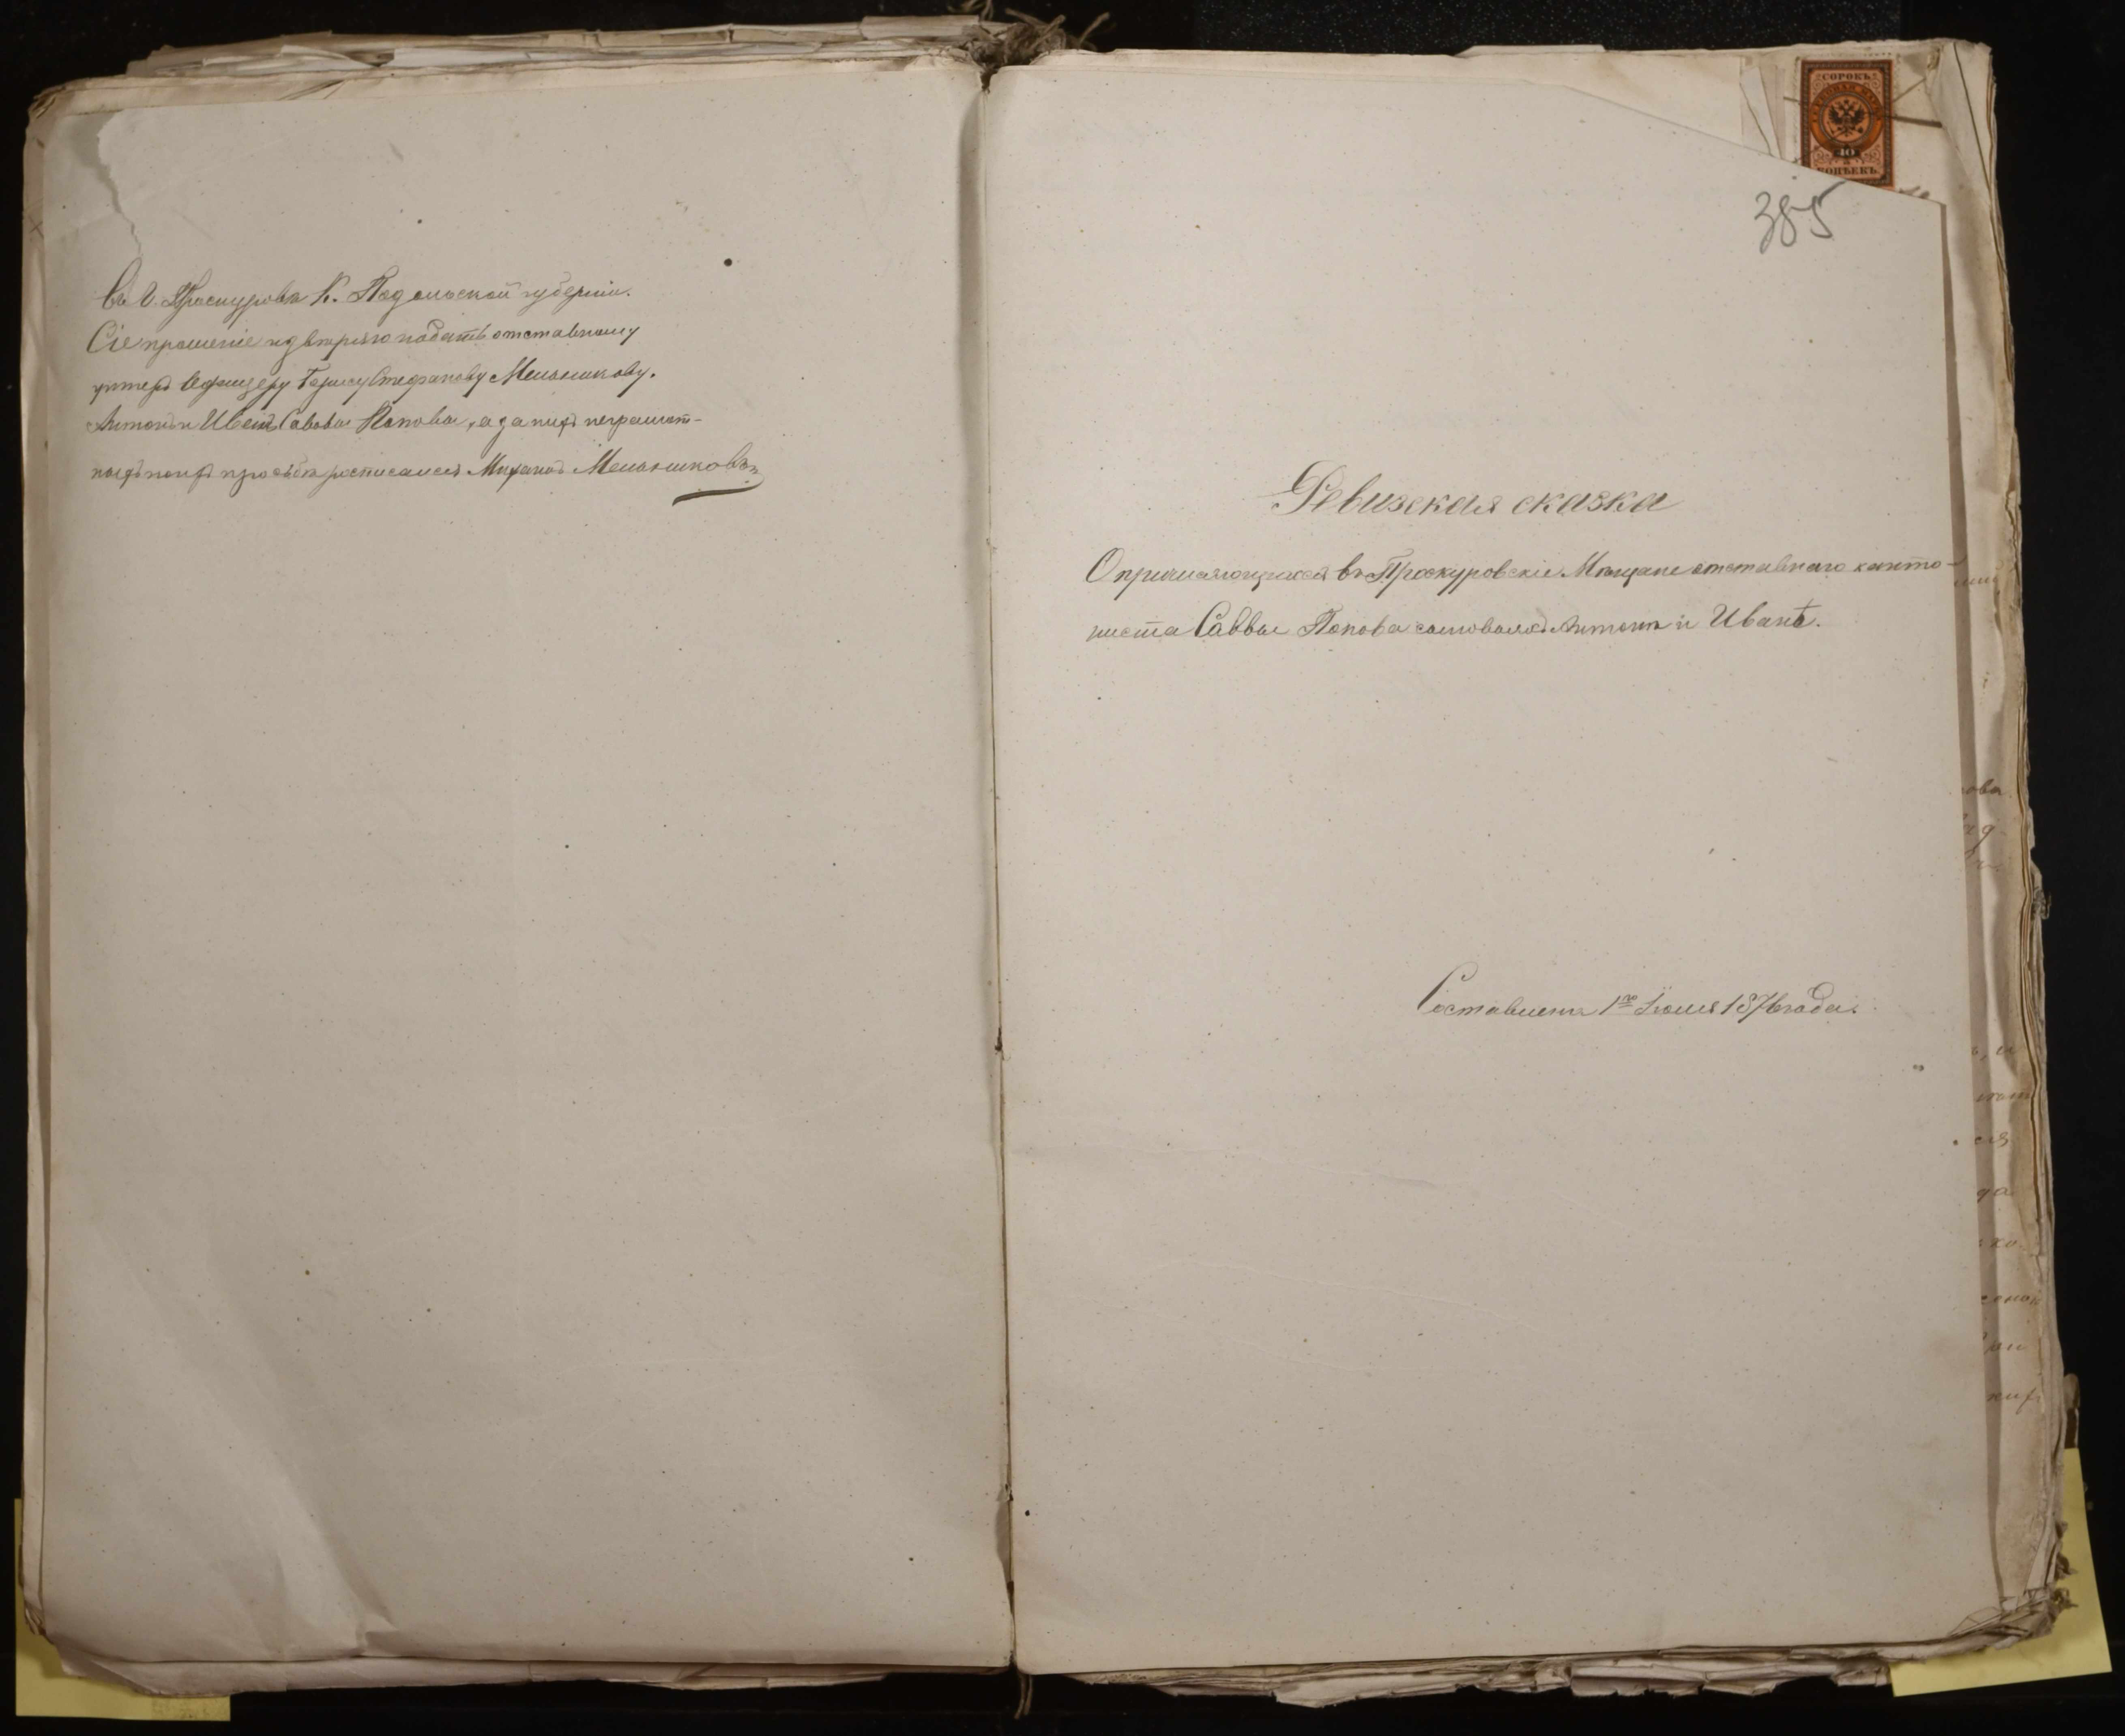 Въ Г. Проскуровѣ К. Подольской губерніи.
Сіе прошеніе и довѣряю подать отставному
унтеръ Офицеру Борису Стефанову Мельникову.
Антонъ и Иванъ Саввовы Поповы, а за нихъ неграмот-
ныхъ по ихъ просьбѣ росписался Михаилъ Мельниковъ
СОРОКЪ
40
КОПѢЕКЪ
385
Ревизская сказка
О причисляющихся въ Проскуровскіе Мѣщане отставнаго канто-
ниста Саввы Попова сыновьяхъ Антонѣ и Иванѣ.
Составлена 1го Іюля 1876 года.